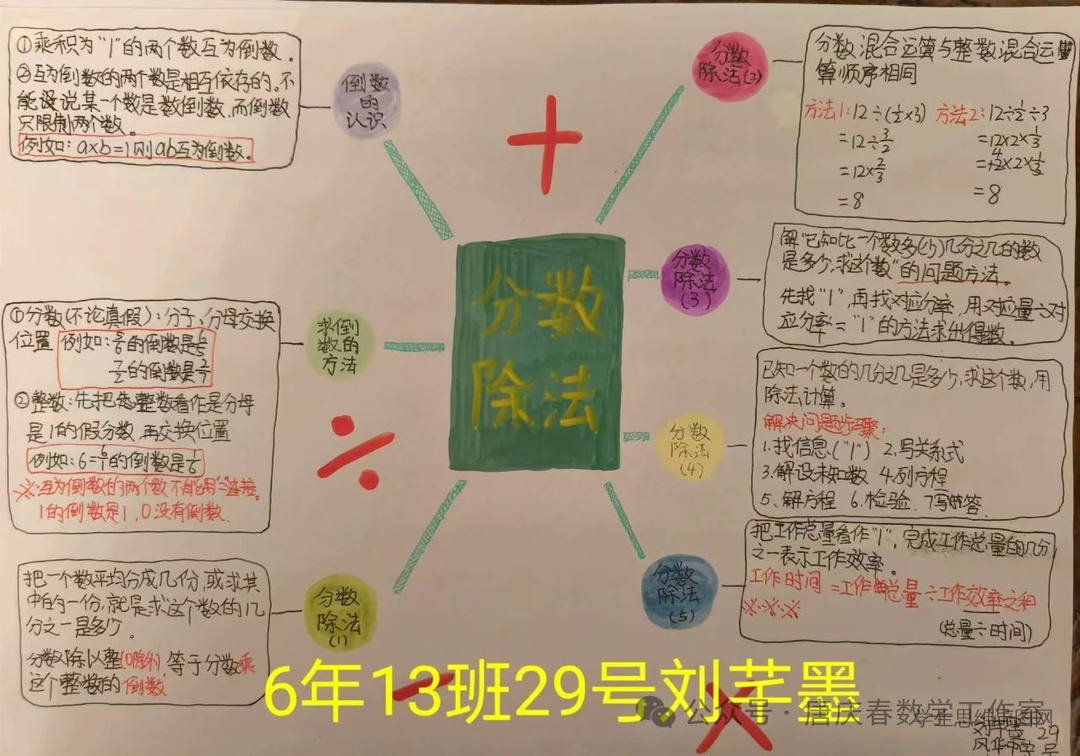 ①乘积为"1"的两个数互为倒数。
②互为倒数的两个数是相互依存的。不
能没说某一个数是数倒数,而倒数
只限制两个数。
例如:a×b=1则ab互为倒数。
倒数
的
认识
①分数(不论真假):分子,分母交换
位置 例如:5/6的倒数是6/5
7/2的倒数是2/7
②整数:先把整数看作是分母
是1的假分数,再交换位置
例如:6=6/1的倒数是1/6
※:互为倒数的两个数不能用"="连接。
1的倒数是1,0没有倒数.
求倒
数的
方法
把一个数平均分成几份,或求其
中的一份,就是求这个数的几
分之一是多少。
分数除以整(0除外)等于分数乘
这个整数的倒数
分数
除法
(1)
分数
除法
分数
除法(2)
分数混合运算与整数混合运
算顺序相同
方法1:12÷(1/2×3) 方法2:12÷1/2÷3
=12÷3/2 =12×2×1/3
=12×2/3 =12×2×1/3
=8 =8
分数
除法
(3)
解"已知比一个数多(少)几分之几的数
是多少,求这个数"的问题方法。
先找"1",再找对应分率,用对应量÷对
应分率="1"的方法求出得数。
分数
除法
(4)
已知一个数的几分之几是多少,求这个数,用
除法计算。
解决问题步骤:
1.找信息("1") 2.写关系式
3.解设未知数 4.列方程
5、解方程 6.检验. 7写答.
分数
除法
(5)
把工作总量看作"1",完成工作总量的几分
之一表示工作效率。
工作时间=工作总量÷工作效率之和
※※※
(总量÷时间)
6年13班29号刘芊墨
公众号·唐庆春数学工作室
29